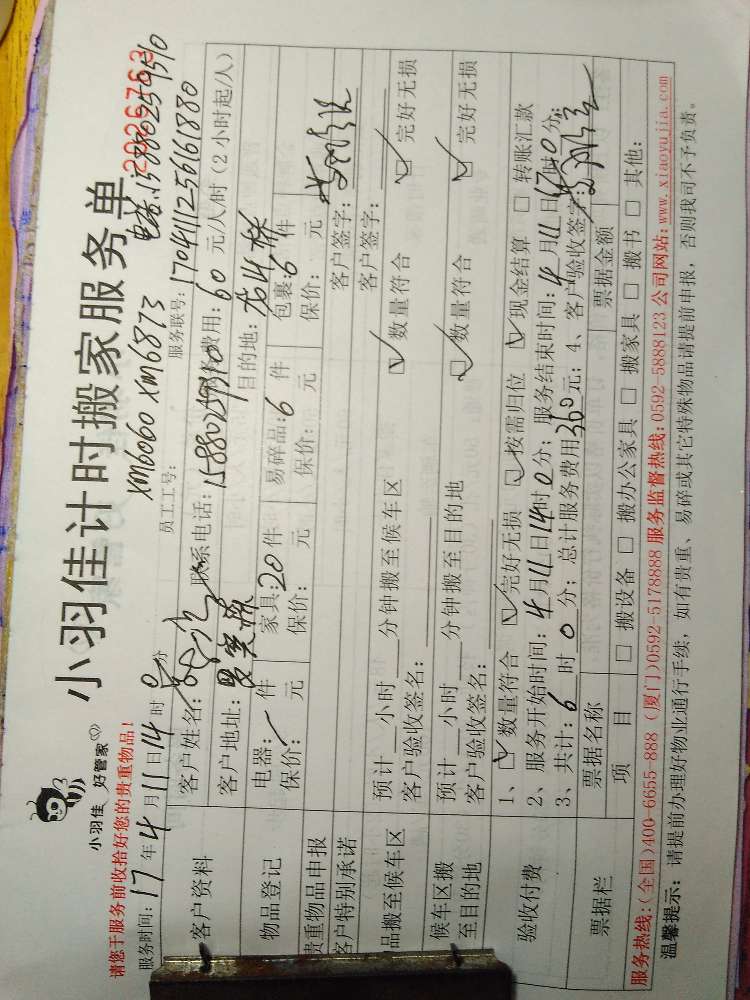 小羽佳 好管家
小羽佳计时搬家服务单
2026763
请您于服务前收拾好您的贵重物品！
XM6060 XM6873 电话:15880259510
服务时间：17年4月11日14时0分 员工工号： 服务联号：17041112561 61880
客户资料
客户姓名： 联系电话：15880259510 费用：60元/人/时（2小时起/人）
客户地址： 目的地：
物品登记
电器： 件 家具：20件 易碎品：6件 包裹：6件
保价： 元 保价： 元 保价： 元 保价： 元
贵重物品申报 客户签字：
客户特别承诺 客户签字：
品搬至候车区
预计 小时 分钟搬至候车区 ☑数量符合 ☑完好无损
客户验收签名：
候车区搬
至目的地
预计 小时 分钟搬至目的地 ☑数量符合 ☑完好无损
客户验收签名：
验收付费
1、☑数量符合 ☑完好无损 ☑按需归位 ☑现金结算 □转账汇款
2、服务开始时间：4月11日14时0分；服务结束时间：4月11日17时0分；
3、共计：6时0分；总计服务费用360元；4、客户验收签字：
票据栏
票据名称 票据金额
项 目 □搬设备 □搬办公家具 □搬家具 □搬书 □其他：
服务热线：(全国)400-6655-888 (厦门)0592-5178888 服务监督热线：0592-5888123 公司网站：www.xiaoyujia.com
温馨提示：请提前办理好物业通行手续，如有贵重、易碎或其它特殊物品请提前申报，否则我司不予负责。